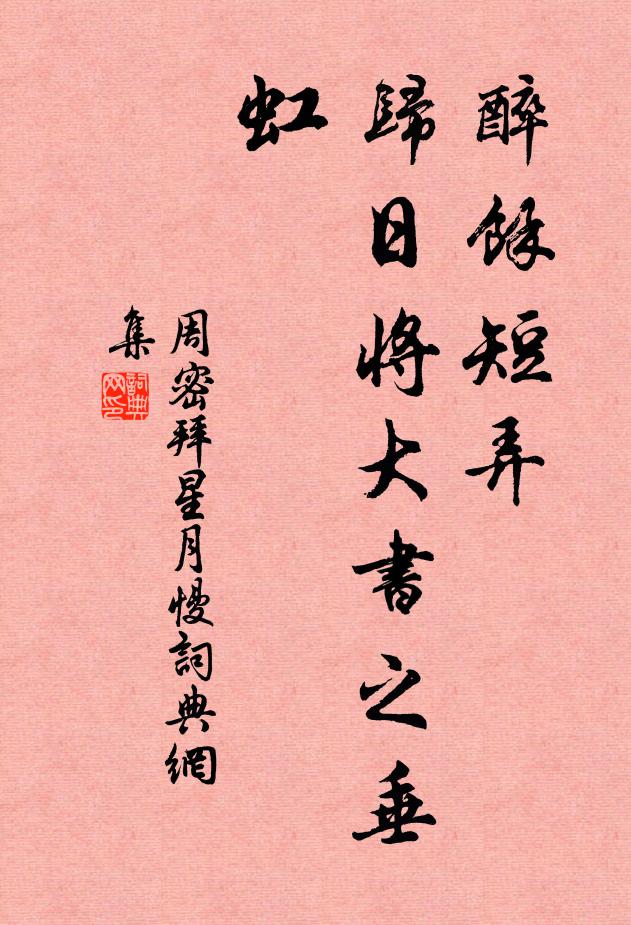 醉餘短弄
歸日將大書之垂
虹
周密拜星月慢詞典網
集
詞典
网印